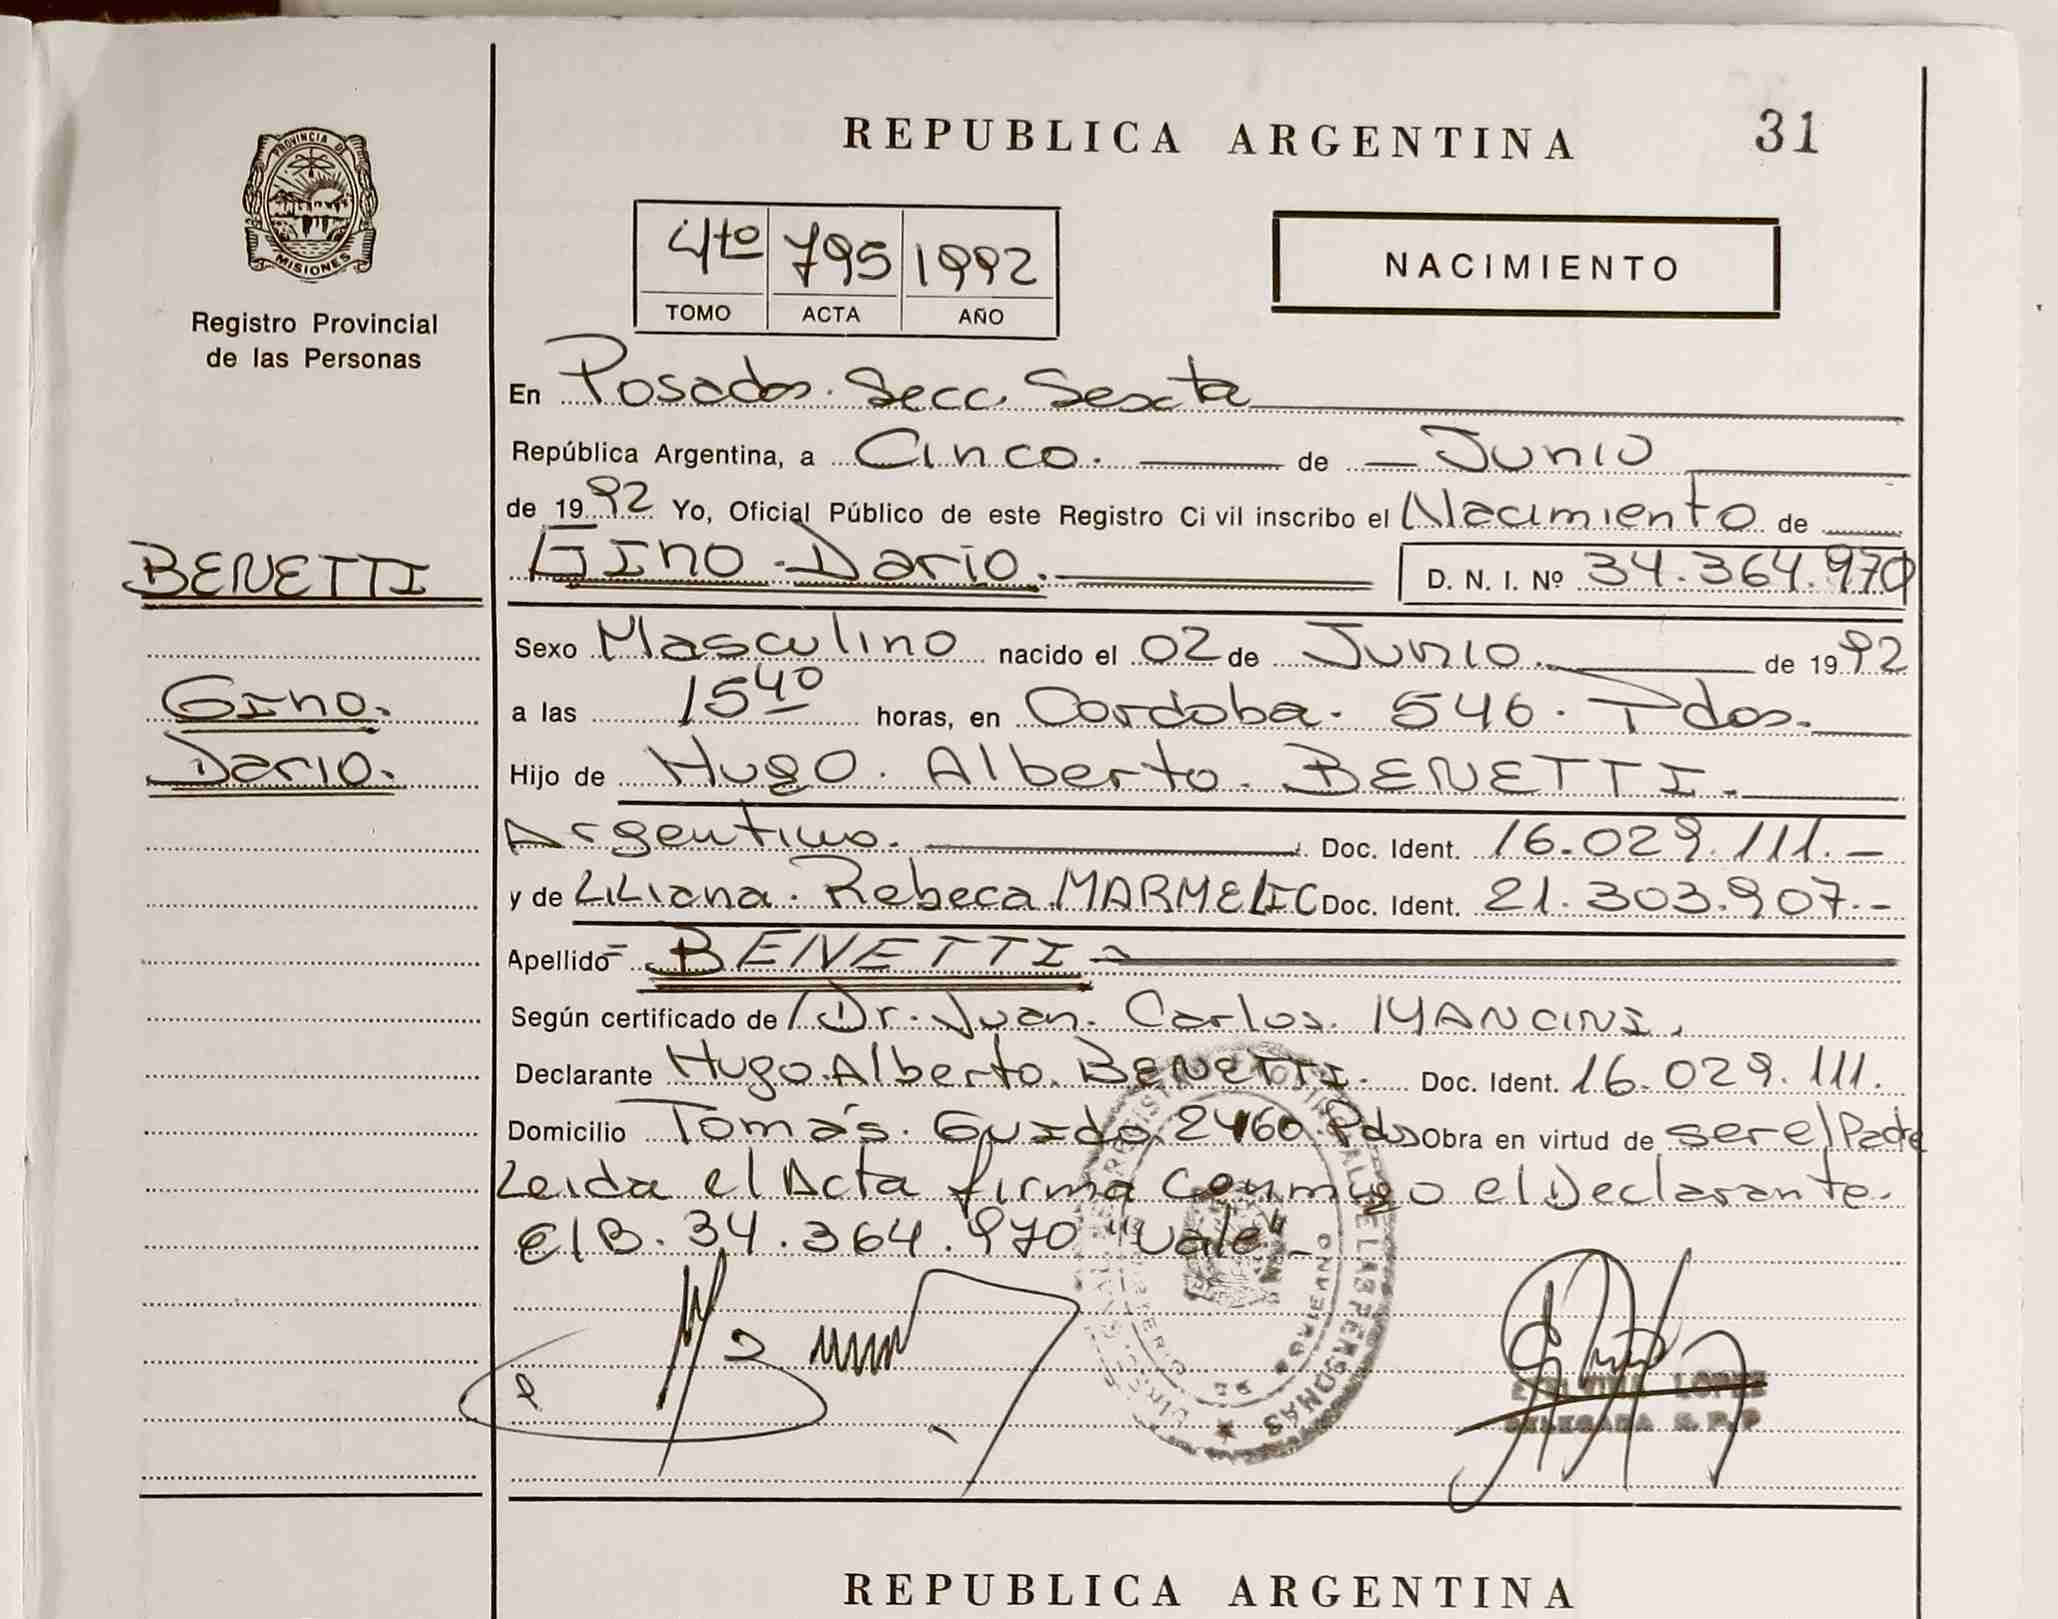 REPUBLICA ARGENTINA
31
PROVINCIA DE
MISIONES
Registro Provincial
de las Personas
4to 795 1992
TOMO ACTA AÑO
NACIMIENTO
En Posadas. Secc. Sexta
República Argentina, a Cinco. de Junio
de 1992 Yo, Oficial Público de este Registro Civil inscribo el Nacimiento de
BENETTI
Gino. Dario.
Gino Dario. D. N. I. Nº 34.364.970
Sexo Masculino nacido el 02 de Junio. de 1992
a las 15 40 horas, en Cordoba. 546. Pdas.
Hijo de Hugo. Alberto. BENETTI.
Argentino. Doc. Ident. 16.029.111.-
y de Liliana. Rebeca. MARMELIC Doc. Ident. 21.303.907.-
Apellido= BENETTI
Según certificado de Dr. Juan. Carlos. MANCINI.
Declarante Hugo. Alberto. BENETTI. Doc. Ident. 16.029.111.
Domicilio Tomás. Guido. 2460. Pdas Obra en virtud de ser el Padre
Leida el Acta firma conmigo el Declarante.
E/B. 34.364.970 "Vale"
LOPEZ
DELEGADA R.P.P
REPUBLICA ARGENTINA